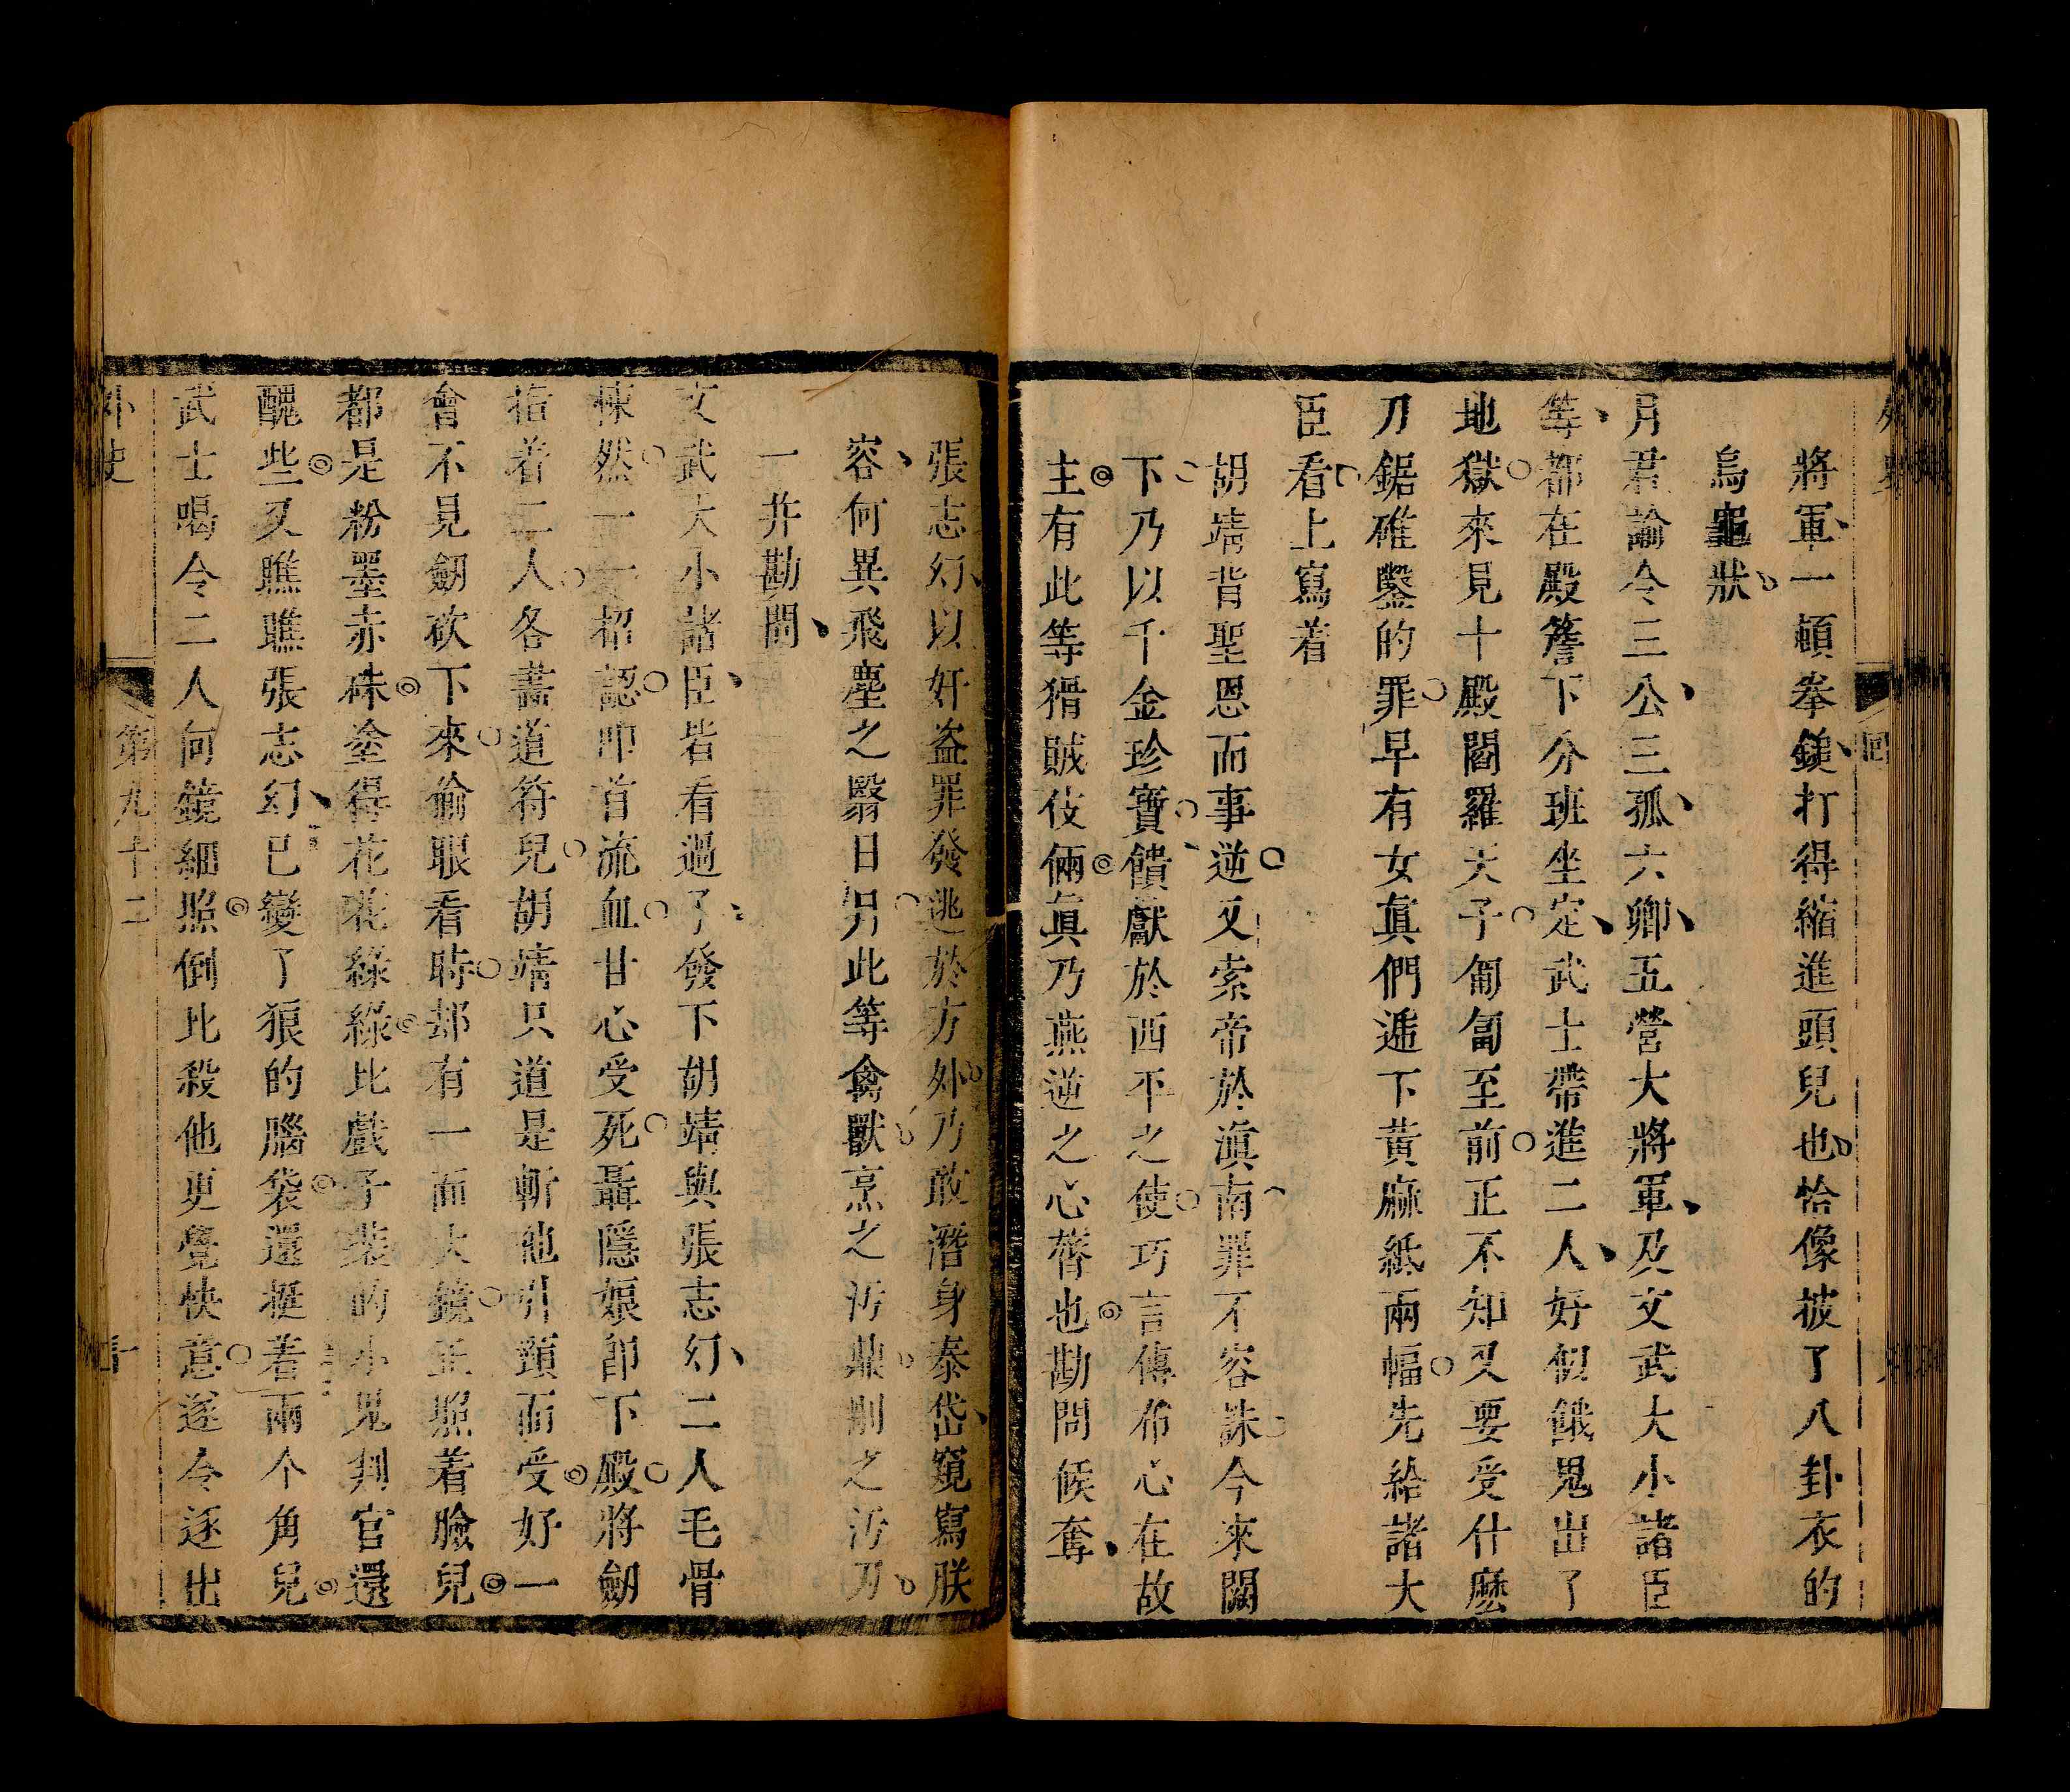 將軍一頓拳鎚打得縮進頭兒也恰像披了八卦衣的
烏龜狀
月君諭令三公三孤六卿五營大將軍及文武大小諸臣
等都在殿簷下分班坐定武士帶進二人好似餓鬼出了
地獄來見十殿閻羅天子匍匐至前正不知又要受什麽
刀鋸碓鑿的罪早有女真們遞下黃麻紙兩幅先給諸大
臣看上寫着
胡靖背聖恩而事逆又索帝於滇南罪不容誅今來闕
下乃以千金珍寶饋獻於西平之使巧言傳布心在故
主有此等猾賊伎倆真乃燕逆之心膂也勘問候奪
張志幻以奸盗罪發逃於方外乃敢潛身泰岱窺寫朕
容何異飛塵之翳日另此等禽獸烹之汚鼎剮之汚刀
一并勘問
文武大小諸臣皆看過了發下胡靖與張志幻二人毛骨
悚然一一招認叩首流血甘心受死聶隱娘卽下殿將劒
指着二人各畫道符兒胡靖只道是斬他引頸而受好一
會不見劒砍下來偷眼看時却有一面大鏡正照着臉兒
都是粉墨赤硃塗得花花綠綠比戲子裝的小鬼判官還
醜些又瞧瞧張志幻已變了狼的腦袋還挺着兩个角兒
武士喝令二人向鏡細照倒比殺他更覺快意遂令逐出
外史
第九十二